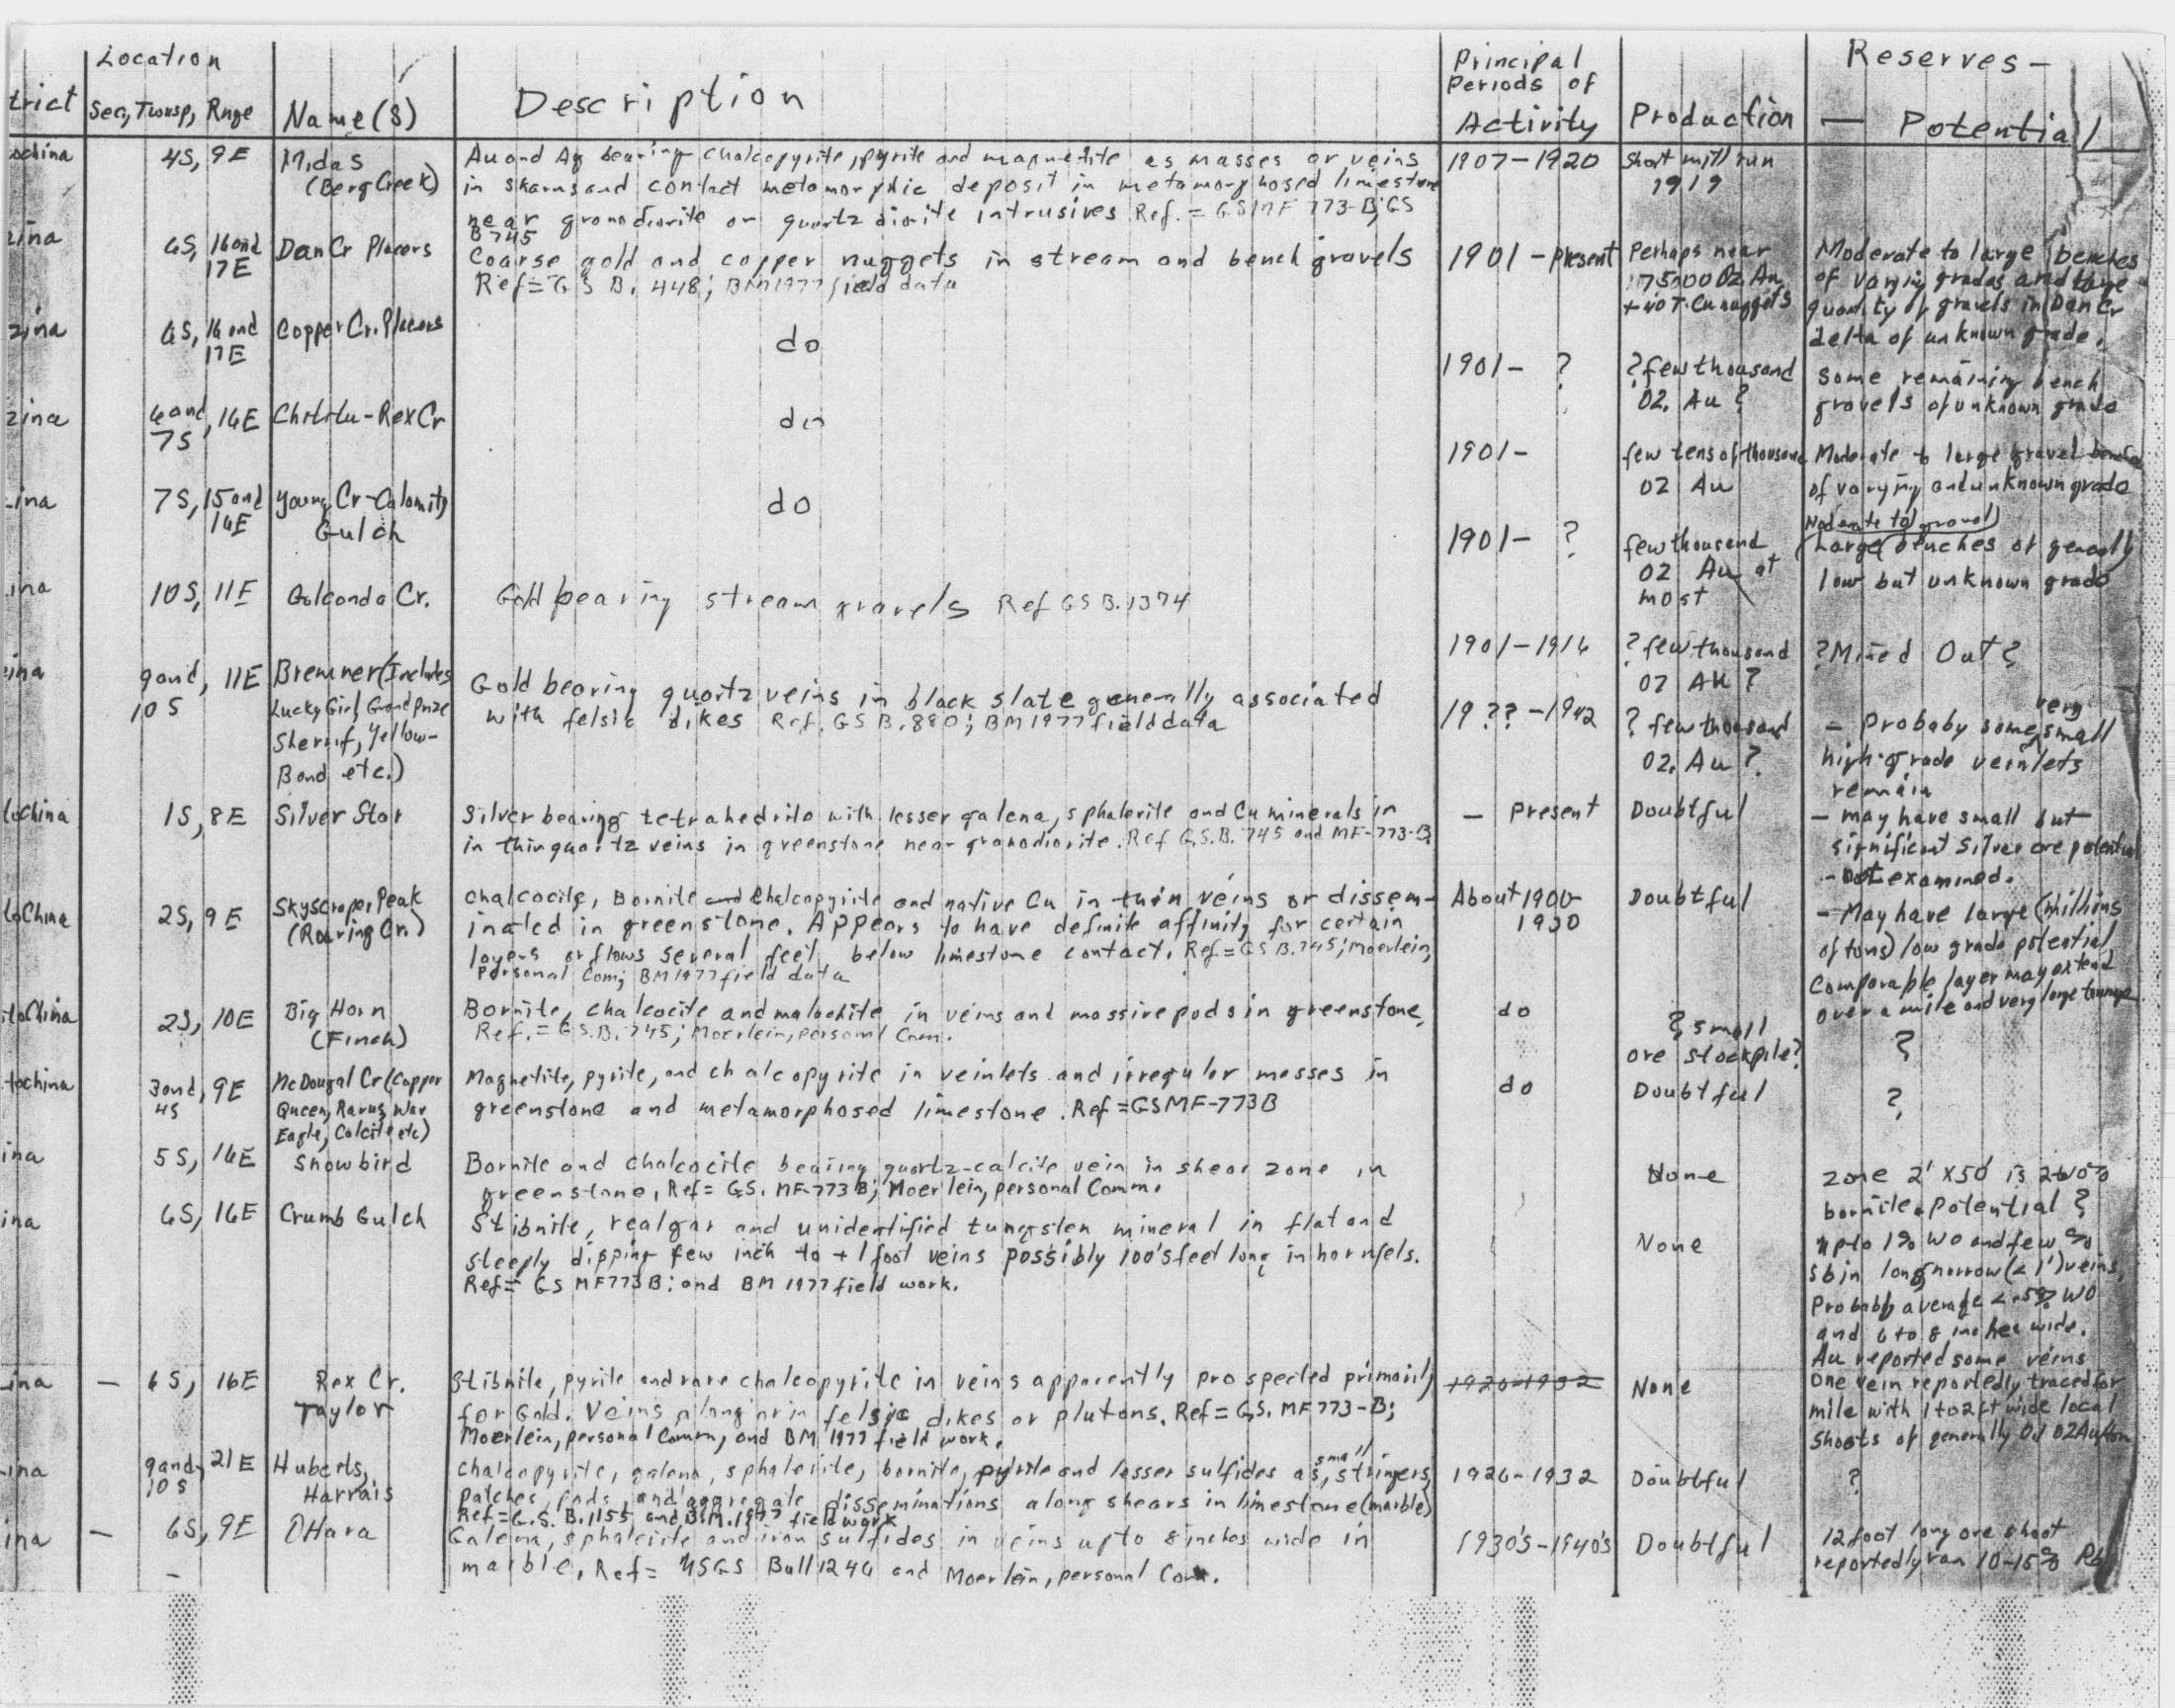 Location
trict
Sec, Twnsp, Rnge
Name(s)
Description
Principal
Periods of
Activity
Production
Reserves —
— Potential
ochina
4S, 9E
Midas
(Berg Creek)
Au and Ag bearing chalcopyrite, pyrite and magnetite as masses or veins
in skarns and contact metamorphic deposit in metamorphosed limestone
near granodiorite or quartz diorite intrusives Ref. = GS MF 773-B; GS
B 745
1907-1920
Short mill run
1919
zina
6S, 16 and
17E
Dan Cr Placers
Coarse gold and copper nuggets in stream and bench gravels
Ref = G S B. 448; BM 1977 field data
1901 - present
Perhaps near
oz Au
+ 40 T. Cu nuggets
Moderate to large benches
of varying grades and large
quantity of gravels in Dan Cr
delta of unknown grade.
zina
6S, 16 and
17E
Copper Cr. Placers
do
1901 - ?
? few thousand
oz. Au ?
Some remaining bench
gravels of unknown grade
zina
6 and, 16E
7S
Chititu - Rex Cr
do
1901 -
few tens of thousand
oz Au
Moderate to large gravel benches
of varying and unknown grade
ina
7S, 15 and
16E
Young Cr - Calamity
Gulch
do
1901 - ?
few thousand
oz Au at
most
Moderate to gravel
Large benches of generally
low but unknown grade
ina
10S, 11E
Golconda Cr.
Gold bearing stream gravels Ref GS B. 1374
1901-1916
? few thousand
oz Au ?
? Mined Out ?
ina
9 and, 11E
10 S
Bremner (Includes
Lucky Girl, Grand prize
Sherrif, Yellow-
Band etc.)
Gold bearing quartz veins in black slate generally associated
with felsic dikes Ref. GS B. 880; BM 1977 field data
19?? - 1942
? few thousand
oz. Au ?
very
- Probaby some small
high-grade veinlets
remain
lochina
1S, 8E
Silver Star
Silver bearing tetrahedrite with lesser galena, sphalerite and Cu minerals in
in thin quartz veins in greenstone near granodiorite. Ref G.S.B. 745 and MF-773-B
— Present
Doubtful
- may have small but
significant Silver ore potential
- not examined.
loChina
2S, 9 E
Skyscraper Peak
(Roaring Cr.)
Chalcocite, Bornite and Chalcopyrite and native Cu in thin veins or dissem-
inated in greenstone. Appears to have definite affinity for certain
layers or flows several feet below limestone contact. Ref = GS B. 745; Moerlein,
Personal Com; BM 1977 field data
About 1900-
1930
Doubtful
- May have large (millions
of tons) low grade potential
Comparable layer may extend
over a mile and very large tonnage
toChina
2S, 10E
Big Horn
(Finch)
Bornite, chalcocite and malachite in veins and massive pods in greenstone.
Ref. = G.S.B. 745; Moerlein, personal Com.
do
? small
ore stockpile?
?
tochina
3 and, 9E
4S
McDougal Cr (Copper
Queen, Rarus, War
Eagle, Calcite etc)
Magnetite, pyrite, and chalcopyrite in veinlets and irregular masses in
greenstone and metamorphosed limestone. Ref = GSMF-773B
do
Doubtful
?
ina
5 S, 16E
Snowbird
Bornite and Chalcocite bearing quartz-calcite vein in shear zone in
greenstone, Ref = G.S. MF-773 B; Moerlein, personal Comm.
None
zone 2' x 50' is
bornite. Potential ?
ina
6S, 16E
Crumb Gulch
Stibnite, realgar and unidentified tungsten mineral in flat and
steeply dipping few inch to + 1 foot veins possibly 100's feet long in hornfels.
Ref = GS MF773B; and BM 1977 field work.
None
up to 1% WO and few %
Sb in long, narrow (<1') veins,
Probably average < .5% WO
and 6 to 8 inches wide.
Au reported some veins
ina
— 6 S, 16E
Rex Cr.
Taylor
Stibnite, pyrite and rare chalcopyrite in veins apparently prospected primarily
for Gold. Veins along or in felsic dikes or plutons. Ref = G.S. MF 773-B;
Moerlein, personal Comm, and BM 1977 field work.
None
One vein reportedly traced for
mile with 1 to 2 ft wide local
Shoots of generally 0.1 oz Au/ton
ina
9 and, 21E
10 S
Huberts,
Harrais
small
Chalcopyrite, galena, sphalerite, bornite, pyrite and lesser sulfides as, stringers,
patches, pods, and aggregate disseminations along shears in limestone (marble)
Ref = G.S. B. 1155 and B.M. 1977 field work
1926-1932
Doubtful
?
ina
— 6S, 9E
OHara
Galena, sphalerite and iron sulfides in veins up to 8 inches wide in
marble, Ref = USGS Bull 1246 and Moerlein, personal Com.
1930's-1940's
Doubtful
12 foot long ore shoot
reportedly ran 10-15% Pb